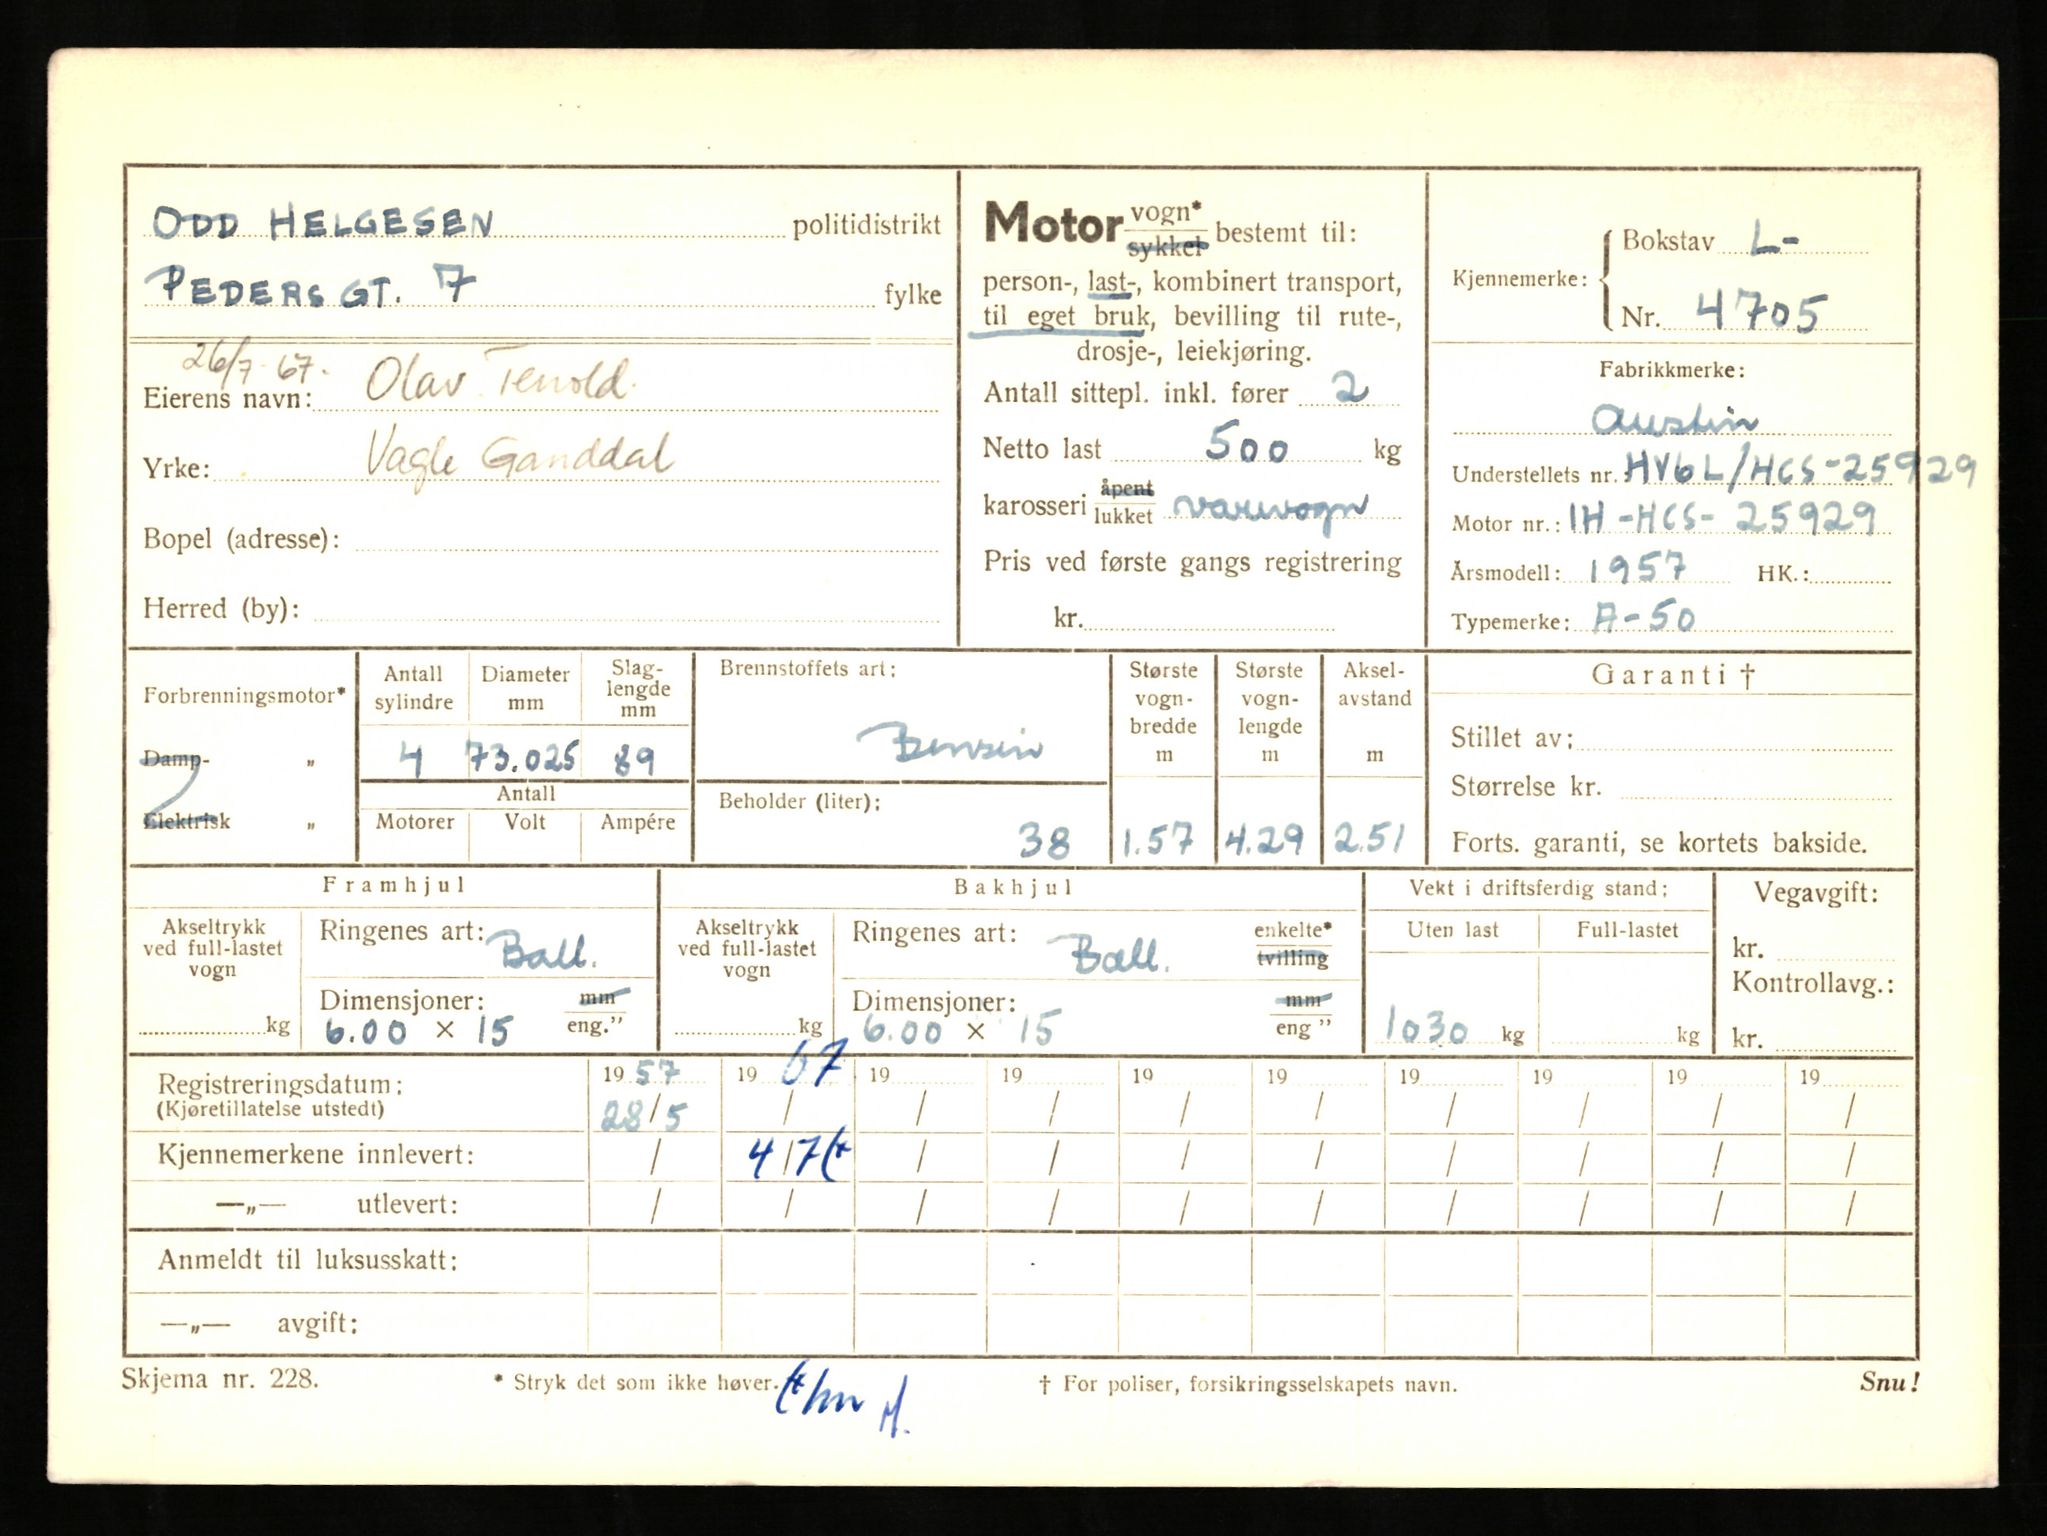 ODD HELGESEN politidistrikt
PEDERSGT. 7 fylke
26/7-67.
Eierens navn: Olav Tenold.
Yrke: Vagle Ganddal
Bopel (adresse):
Herred (by):
Motor vogn* sykkel bestemt til:
person-, last-, kombinert transport,
til eget bruk, bevilling til rute-,
drosje-, leiekjøring.
Antall sittepl. inkl. fører 2
Netto last 500 kg
karosseri åpent lukket varevogn
Pris ved første gangs registrering
kr.
Kjennemerke: Bokstav L-
Nr. 4705
Fabrikkmerke:
Austin
Understellets nr. HV6L/HCS-25929
Motor nr.: 1H-HCS-25929
Årsmodell: 1957 HK.:
Typemerke: A-50
Forbrenningsmotor*
Damp- „
Elektrisk „
Antall sylindre Diameter mm Slag-lengde mm
4 73.025 89
Antall
Motorer Volt Ampére
Brennstoffets art:
Bensin
Beholder (liter):
38
Største vogn-bredde m
1.57
Største vogn-lengde m
4.29
Aksel-avstand m
2.51
Garanti †
Stillet av:
Størrelse kr.
Forts. garanti, se kortets bakside.
Framhjul
Akseltrykk ved full-lastet vogn
kg
Ringenes art: Ball.
Dimensjoner: mm eng.”
6.00 × 15
Bakhjul
Akseltrykk ved full-lastet vogn
kg
Ringenes art: Ball. enkelte* tvilling
Dimensjoner: mm eng ”
6.00 × 15
Vekt i driftsferdig stand:
Uten last Full-lastet
1030 kg kg
Vegavgift:
kr.
Kontrollavg.:
kr.
Registreringsdatum: 19 57 19 67 19 19 19 19 19 19 19 19
(Kjøretillatelse utstedt) 28/5 / / / / / / / / /
Kjennemerkene innlevert: / 4/7 (* / / / / / / / /
—„— utlevert: / / / / / / / / / /
Anmeldt til luksusskatt:
—„— avgift:
Skjema nr. 228.
* Stryk det som ikke høver.
† For poliser, forsikringsselskapets navn.
Snu!